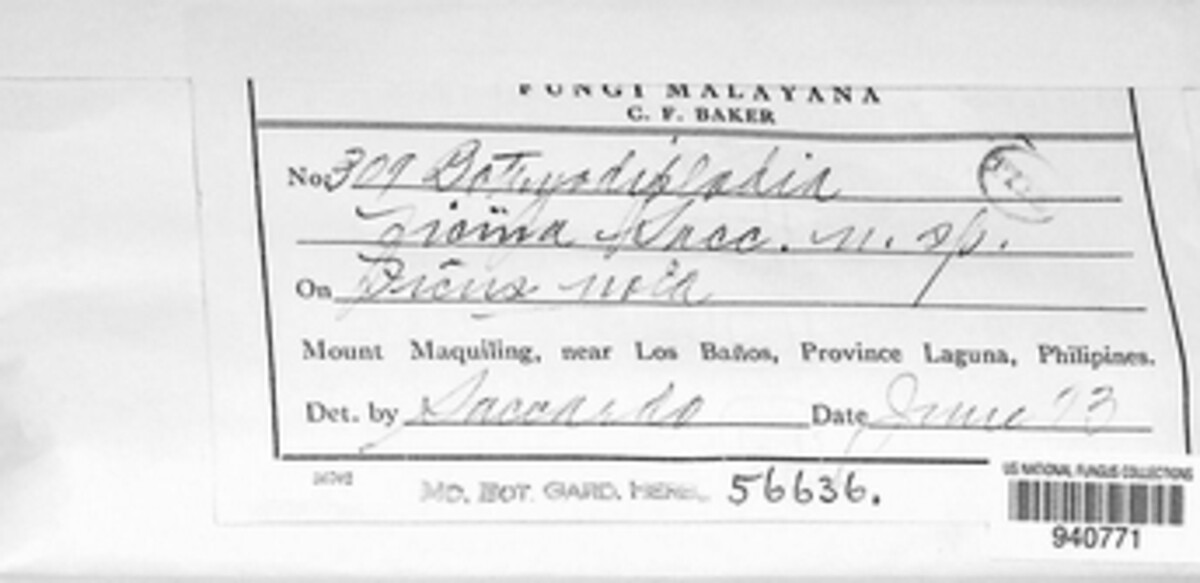 FUNGI MALAYANA
C. F. BAKER
No. 309 Botryodiplodia
ficina Sacc. n. sp.
On Ficus nota
Mount Maquiling, near Los Baños, Province Laguna, Philipines.
Det. by Saccardo Date June 13
MO. BOT. GARD. HERB. 56636.
US NATIONAL FUNGUS COLLECTIONS
940771